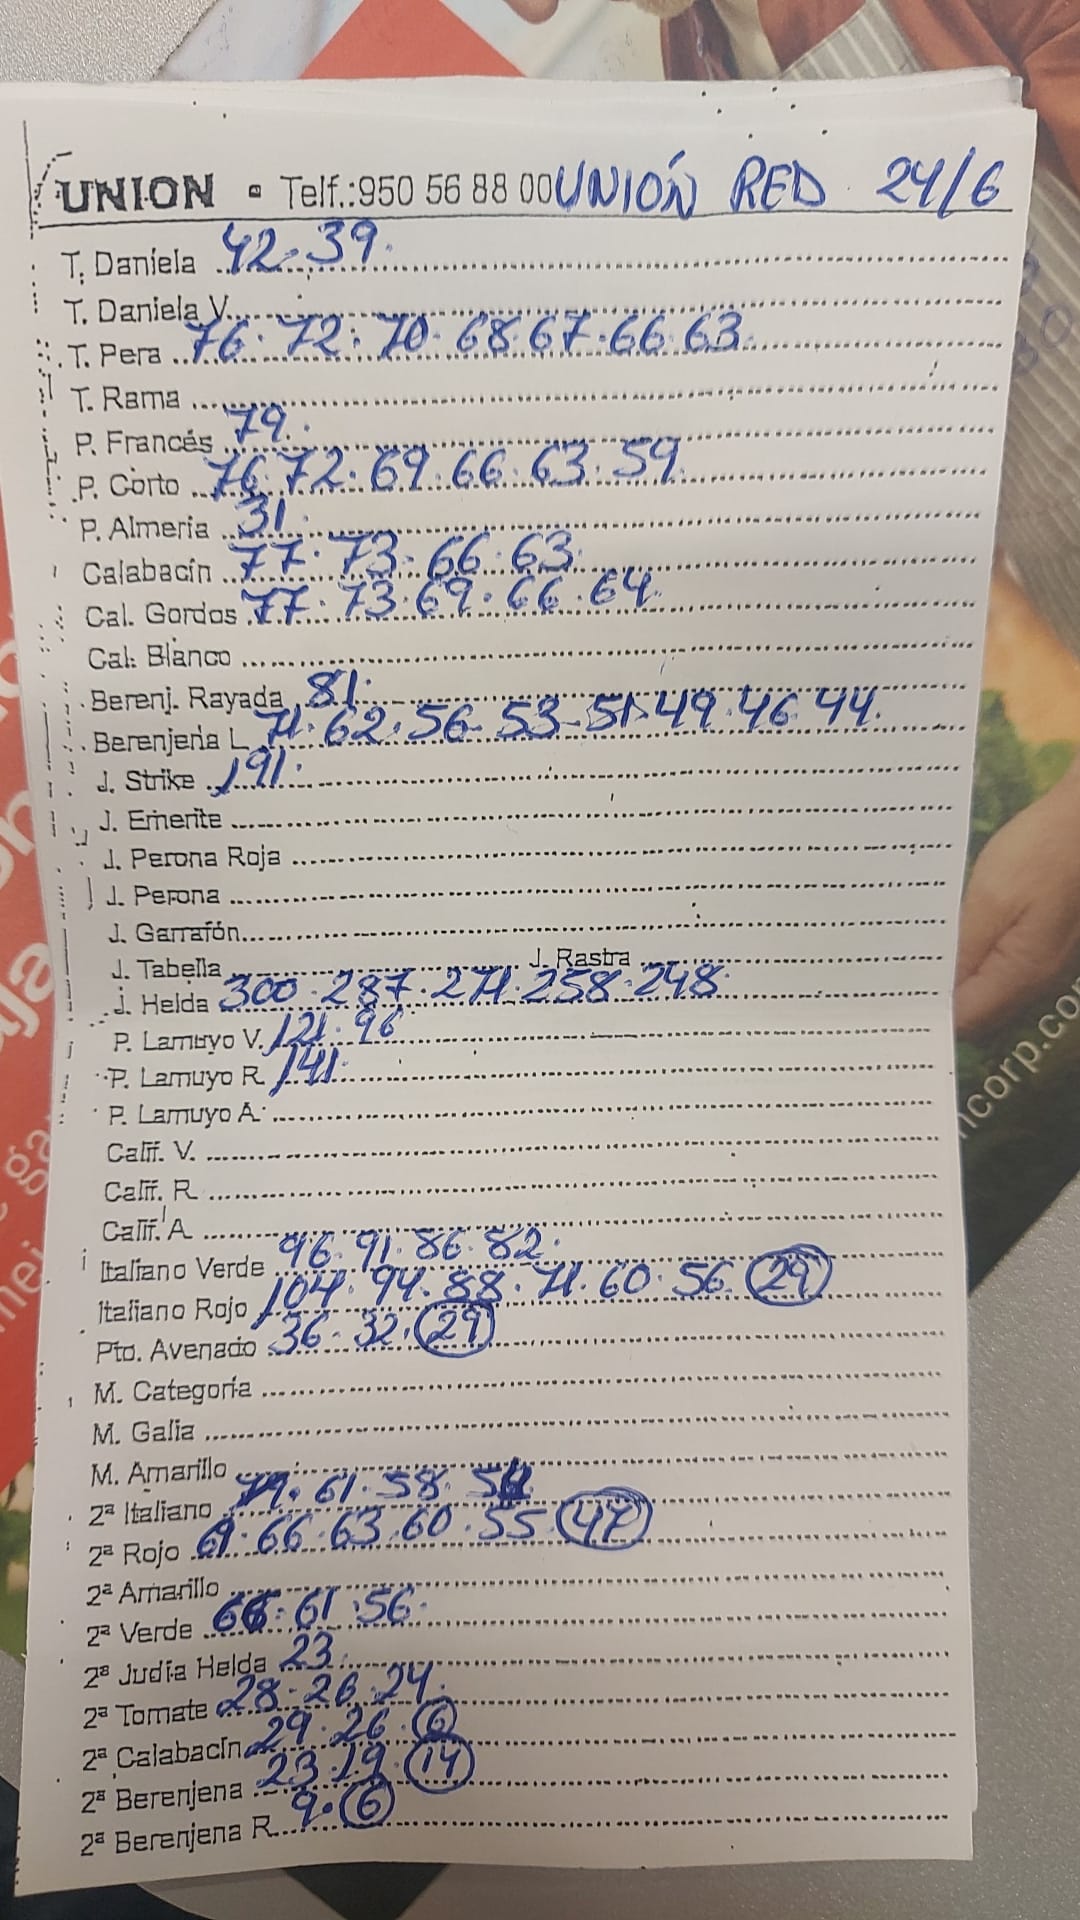 UNION - Telf.:950 56 88 00 UNIÓN RED 24/6
T. Daniela 42.39.
T. Daniela V.
T. Pera 76.72.70.68.67.66.63.
T. Rama
P. Francés 79.
P. Corto 76.72.69.66.63.59.
P. Almeria 31.
Calabacín 77.73.66.63.
Cal. Gordos 77.73.69.66.64.
Cal. Blanco
Berenj. Rayada 81.
Berenjena L 71.62.56-53-51-49.46.44.
J. Strike 191.
J. Emerite
J. Perona Roja
J. Perona
J. Garrafón
J. Tabella J. Rastra
J. Helda 300.287.271.258.248.
P. Lamuyo V. 121.96.
P. Lamuyo R. 141.
P. Lamuyo A.
Calif. V.
Calif. R.
Calif. A.
Italiano Verde 96.91.86.82.
Italiano Rojo 104.94.88.71.60.56. 29
Pto. Avenado 36.32. 29
M. Categoría
M. Galia
M. Amarillo
2ª Italiano 61.58.
2ª Rojo 69.66.63.60.55. 47
2ª Amarillo
2ª Verde 66.61.56.
2ª Judía Helda 23.
2ª Tomate 28.26.24.
2ª Calabacín 29.26. 6
2ª Berenjena 23.19. 14
2ª Berenjena R. 9. 6
ncorp.co